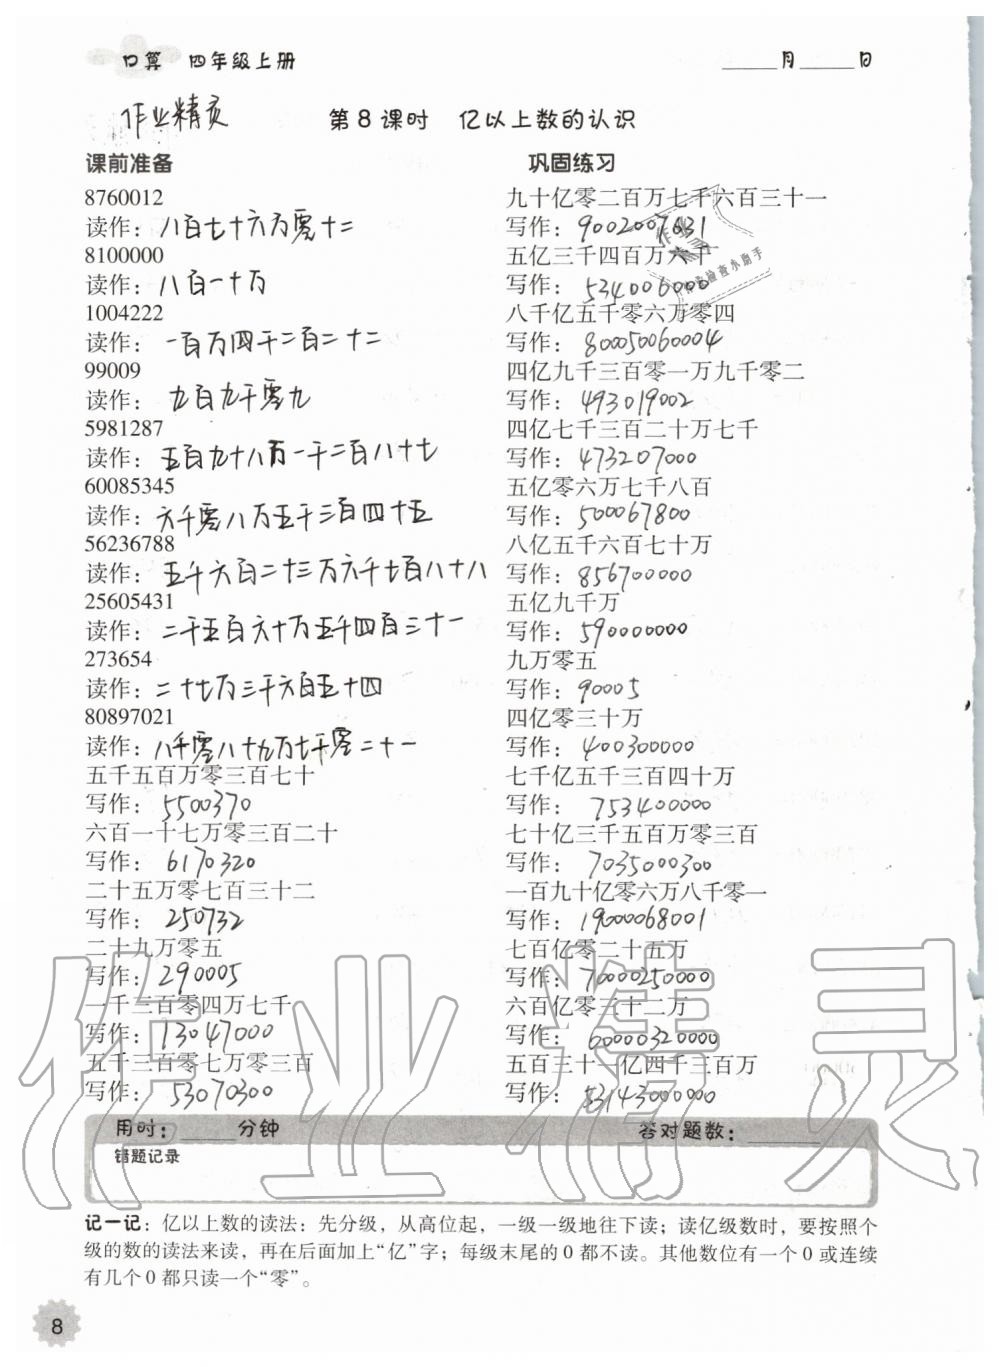 口算 四年级上册
____月____日
作业精灵
第8课时 亿以上数的认识
课前准备
8760012
读作：八百七十六万零十二
8100000
读作：八百一十万
1004222
读作：一百万四千二百二十二
99009
读作：九百九千零九
5981287
读作：五百九十八万一千二百八十七
60085345
读作：六千零八万五千三百四十五
56236788
读作：五千六百二十三万六千七百八十八
25605431
读作：二千五百六十万五千四百三十一
273654
读作：二十七万三千六百五十四
80897021
读作：八千零八十九万七千零二十一
五千五百万零三百七十
写作：5500370
六百一十七万零三百二十
写作：6170320
二十五万零七百三十二
写作：250732
二十九万零五
写作：290005
一千三百零四万七千
写作：13047000
五千三百零七万零三百
写作：53070300
巩固练习
九十亿零二百万七千六百三十一
写作：9002007631
五亿三千四百万六千
写作：534006000
八千亿五千零六万零四
写作：800050060004
四亿九千三百零一万九千零二
写作：493019002
四亿七千三百二十万七千
写作：473207000
五亿零六万七千八百
写作：500067800
八亿五千六百七十万
写作：856700000
五亿九千万
写作：590000000
九万零五
写作：90005
四亿零三十万
写作：400300000
七千亿五千三百四十万
写作：753400000
七十亿三千五百万零三百
写作：7035000300
一百九十亿零六万八千零一
写作：19000068001
七百亿零二十五万
写作：70000250000
六百亿零三十二万
写作：60000320000
五百三十一亿四千三百万
写作：53143000000
用时：____分钟
答对题数：____
错题记录
记一记：亿以上数的读法：先分级，从高位起，一级一级地往下读；读亿级数时，要按照个
级的数的读法来读，再在后面加上“亿”字；每级末尾的0都不读。其他数位有一个0或连续
有几个0都只读一个“零”。
8
作业精灵